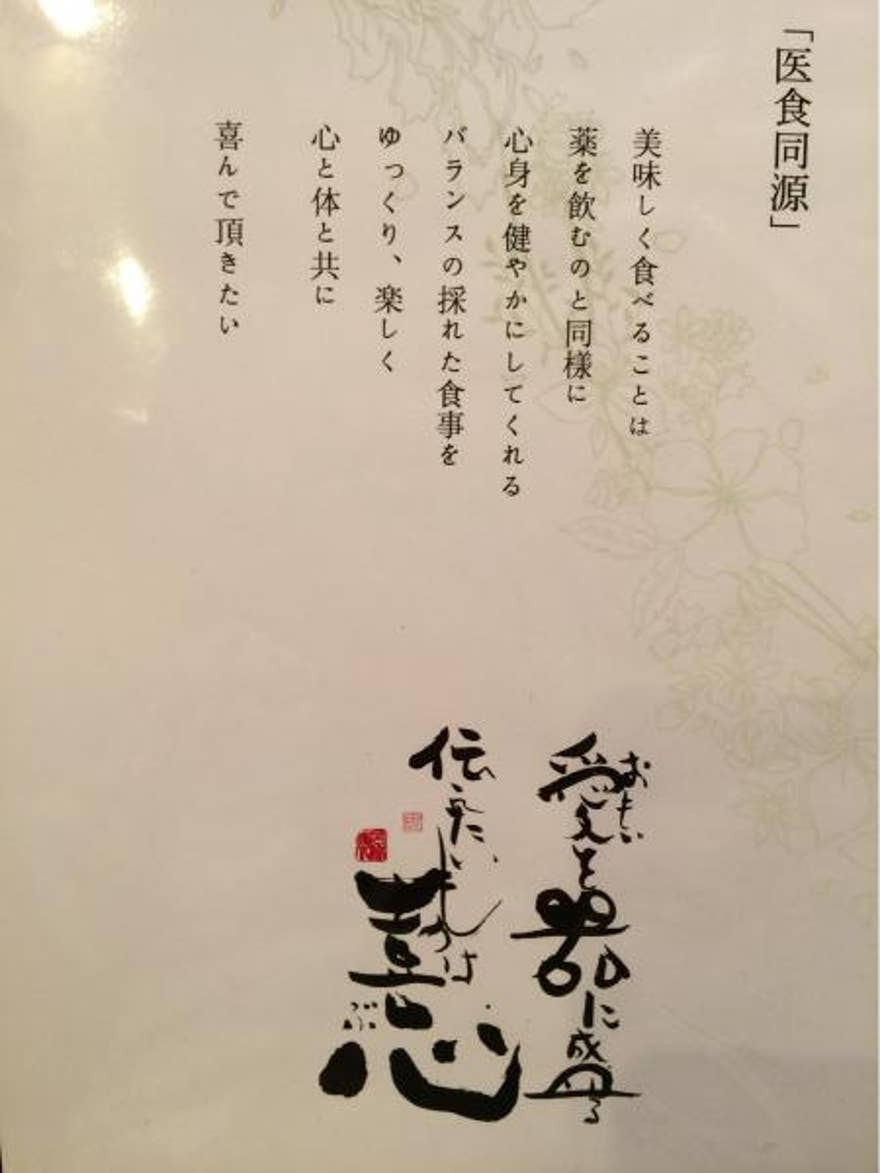 「医食同源」
美味しく食べることは
薬を飲むのと同様に
心身を健やかにしてくれる
バランスの採れた食事を
ゆっくり、楽しく
心と体と共に
喜んで頂きたい
愛を器に盛る
おもい
伝えたいものは
喜心